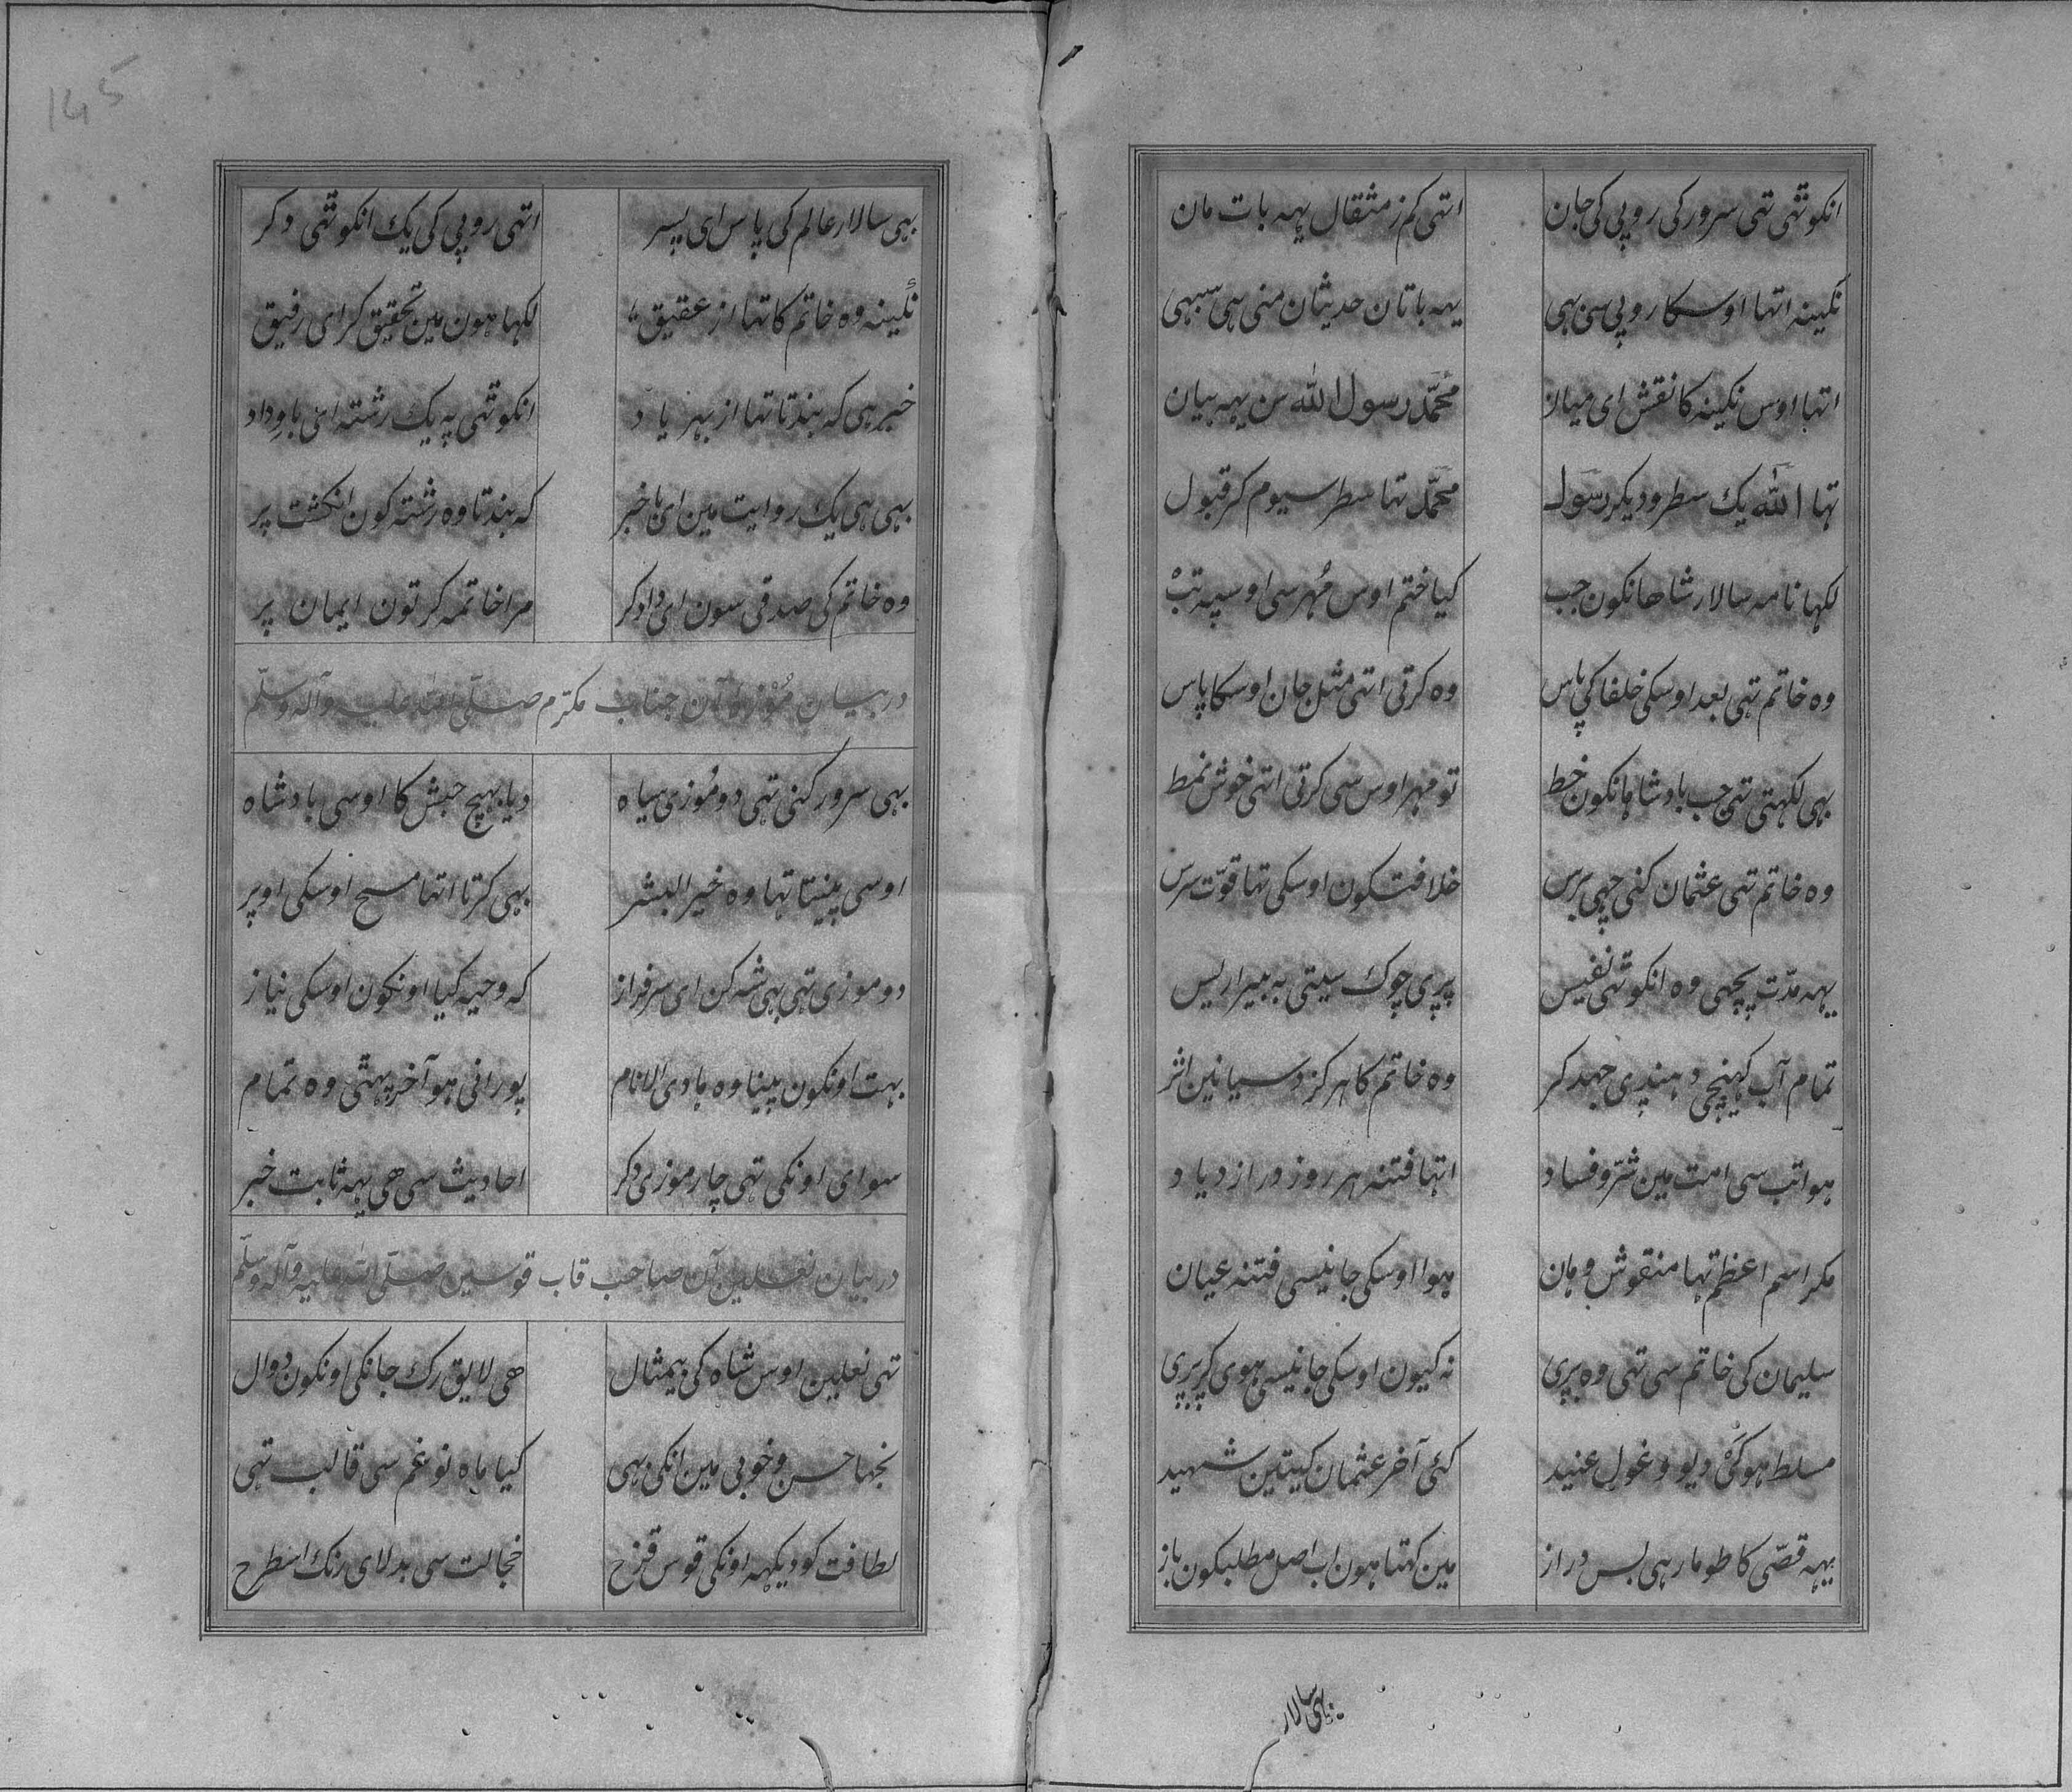 انکوتہی تہی سرور کی روپی کی جان
اتہی کم ز مثقال یہہ بات مان
نکینہ اتہا اوسکا روپی سن بہی
یہہ باتان حدیثان منی ہی سبہی
اتہا اوس نکینہ کا نقش ای میان
محمّد رسول اللّه سن یہہ بیان
تہا اللّه یک سطر و دیکر رسول
محمّد تہا سطر سیوم کر قبول
لکہا نامہ سالار شاهانکون جب
کیا ختم اوس مُہر سی اوسپہ تبْ
وہ خاتم تہی بعد اوسکی خلفا کی پاس
وہ کرتی اتہی مثل جان اوسکا پاس
بہی لکہتی تہی جب بادشاہانکون خط
تو مہر اوس سی کرتی اتہی خوش نمط
وہ خاتم تہی عثمان کنی چہی برس
خلافتکون اوسکی تہا قوّت سرس
یہہ مدّت پچہی وہ انکوتہی نفیس
پری چوک سیتی بہ بیر اریس
تمام آب کہینچی دہندی جہد کر
وہ خاتم کا ہرکز دسیا نین اثر
ہوا تب سی امت مین شرّ و فساد
اتہا فتنہ ہر روز در ازدیاد
مکر اسم اعظم تہا منقوش وہان
ہوا اوسکی جانیسی فتنہ عیان
سلیمان کی خاتم سی تہی وہ پری
نہ کیون اوسکی جانیسی ہوی کرپری
مسلط ہوکی دیو و غول عنید
کئی آخر عثمان کیتین شہید
یہہ قصّی کا طومار ہی بس دراز
مین کہتا ہون اب اصل مطلبکون باز
بہی سالار
بہی سالار عالم کی پاس ای پسر
اتہی روپی کی یک انکوتہی دکر
نکینہ وہ خاتم کا تہا از عقیق
لکہا ہون مین تحقیق کر ای رفیق
خبر ہی کہ بندتا تہا از بہر یاد
انکوتہی پہ یک رشتہ ای با وداد
بہی ہی یک روایت مین ای با خبر
کہ بندتا وہ رشتہ کون انکشت پر
وہ خاتم کی صدقی سون ای دادکر
مرا خاتمہ کر تون ایمان پر
در بیان مُوزہ آن جناب مکرم صلّی اللّه علیہ وآلہ وسلّم
بہی سرور کنی تہی دو مُوزی سیاہ
دیا بہیج حبش کا اوسی بادشاہ
اوسی پینتا تہا وہ خیر البشر
بہی کرتا اتہا مسح اوسکی اوپر
دو موزی تہی بہی شہ کن ای سرفراز
کہ وحیہ کیا اونکون اوسکی نیاز
بہت اونکون پینا وہ ہادی الانام
پورانی ہو آخر پہتی وہ تمام
سوای اونکی تہی چار موزی دکر
احادیث سی هی یہہ ثابت خبر
در بیان نعلین آن صاحب قاب قوسین صلّی اللّه علیہ وآلہ وسلّم
تہی نعلین اوس شاہ کی بیمثال
هی لایق رک جانکی اونکون دوال
نجہا حسن و خوبی مین انکی بہی
کیا ماہ نو غم سی قالب تہی
لطافت کو دیکہہ اونکی قوس قزح
خجالت سی بدلای رنک اسطرح